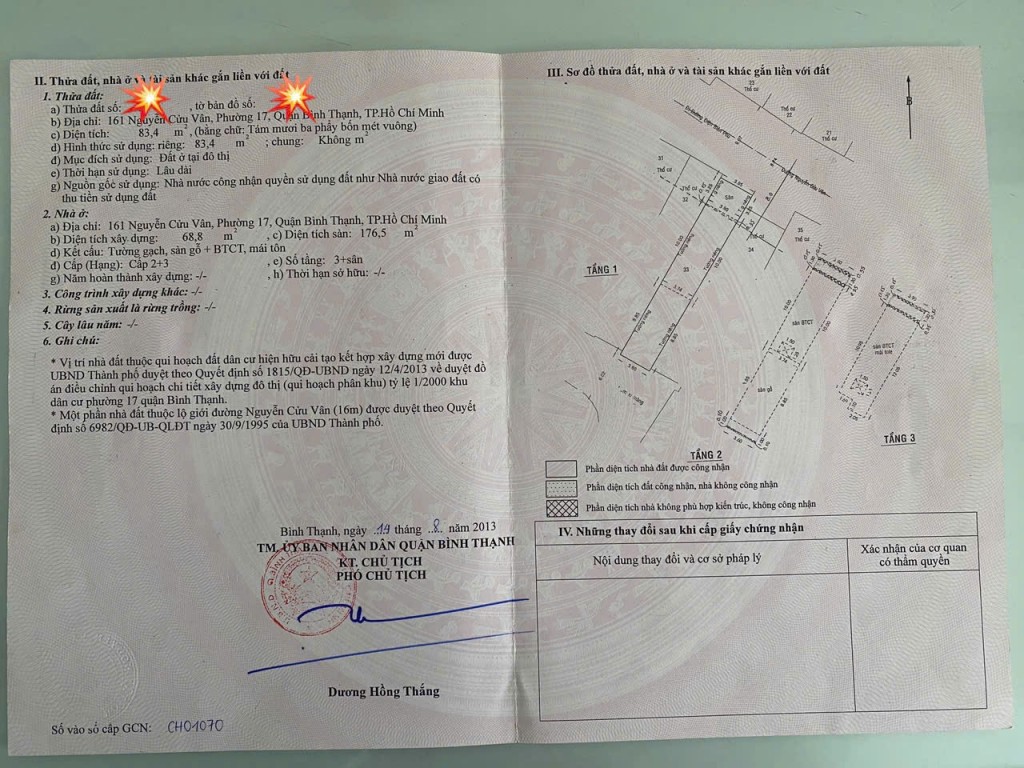 II. Thửa đất, nhà ở và tài sản khác gắn liền với đất
1. Thửa đất:
a) Thửa đất số: , tờ bản đồ số:
b) Địa chỉ: 161 Nguyễn Cửu Vân, Phường 17, Quận Bình Thạnh, TP.Hồ Chí Minh
c) Diện tích: 83,4 m², (bằng chữ: Tám mươi ba phẩy bốn mét vuông)
d) Hình thức sử dụng: riêng: 83,4 m² ; chung: Không m²
đ) Mục đích sử dụng: Đất ở tại đô thị
e) Thời hạn sử dụng: Lâu dài
g) Nguồn gốc sử dụng: Nhà nước công nhận quyền sử dụng đất như Nhà nước giao đất có
thu tiền sử dụng đất
2. Nhà ở:
a) Địa chỉ: 161 Nguyễn Cửu Vân, Phường 17, Quận Bình Thạnh, TP.Hồ Chí Minh
b) Diện tích xây dựng: 68,8 m² , c) Diện tích sàn: 176,5 m²
d) Kết cấu: Tường gạch, sàn gỗ + BTCT, mái tôn
đ) Cấp (Hạng): Cấp 2+3 , e) Số tầng: 3+sân
g) Năm hoàn thành xây dựng: -/- , h) Thời hạn sở hữu: -/-
3. Công trình xây dựng khác: -/-
4. Rừng sản xuất là rừng trồng: -/-
5. Cây lâu năm: -/-
6. Ghi chú:
* Vị trí nhà đất thuộc qui hoạch đất dân cư hiện hữu cải tạo kết hợp xây dựng mới được
UBND Thành phố duyệt theo Quyết định số 1815/QĐ-UBND ngày 12/4/2013 về duyệt đồ
án điều chỉnh qui hoạch chi tiết xây dựng đô thị (qui hoạch phân khu) tỷ lệ 1/2000 khu
dân cư phường 17 quận Bình Thạnh.
* Một phần nhà đất thuộc lộ giới đường Nguyễn Cửu Vân (16m) được duyệt theo Quyết
định số 6982/QĐ-UB-QLĐT ngày 30/9/1995 của UBND Thành phố.
Bình Thạnh, ngày 19 tháng 8 năm 2013
TM. ỦY BAN NHÂN DÂN QUẬN BÌNH THẠNH
KT. CHỦ TỊCH
PHÓ CHỦ TỊCH
Dương Hồng Thắng
Số vào sổ cấp GCN: CH01070
III. Sơ đồ thửa đất, nhà ở và tài sản khác gắn liền với đất
B
23
Thổ cư
22
21
Thổ cư
31
Thổ cư
Thổ cư
32
Sân
Thổ cư
34
35
Thổ cư
33
10.00
Tường riêng
3.74
TẦNG 1
sàn BTCT
sàn gỗ
TẦNG 2
sàn BTCT
mái tole
TẦNG 3
Phần diện tích nhà đất được công nhận
Phần diện tích đất công nhận, nhà không công nhận
Phần diện tích nhà không phù hợp kiến trúc, không công nhận
IV. Những thay đổi sau khi cấp giấy chứng nhận
Nội dung thay đổi và cơ sở pháp lý
Xác nhận của cơ quan
có thẩm quyền